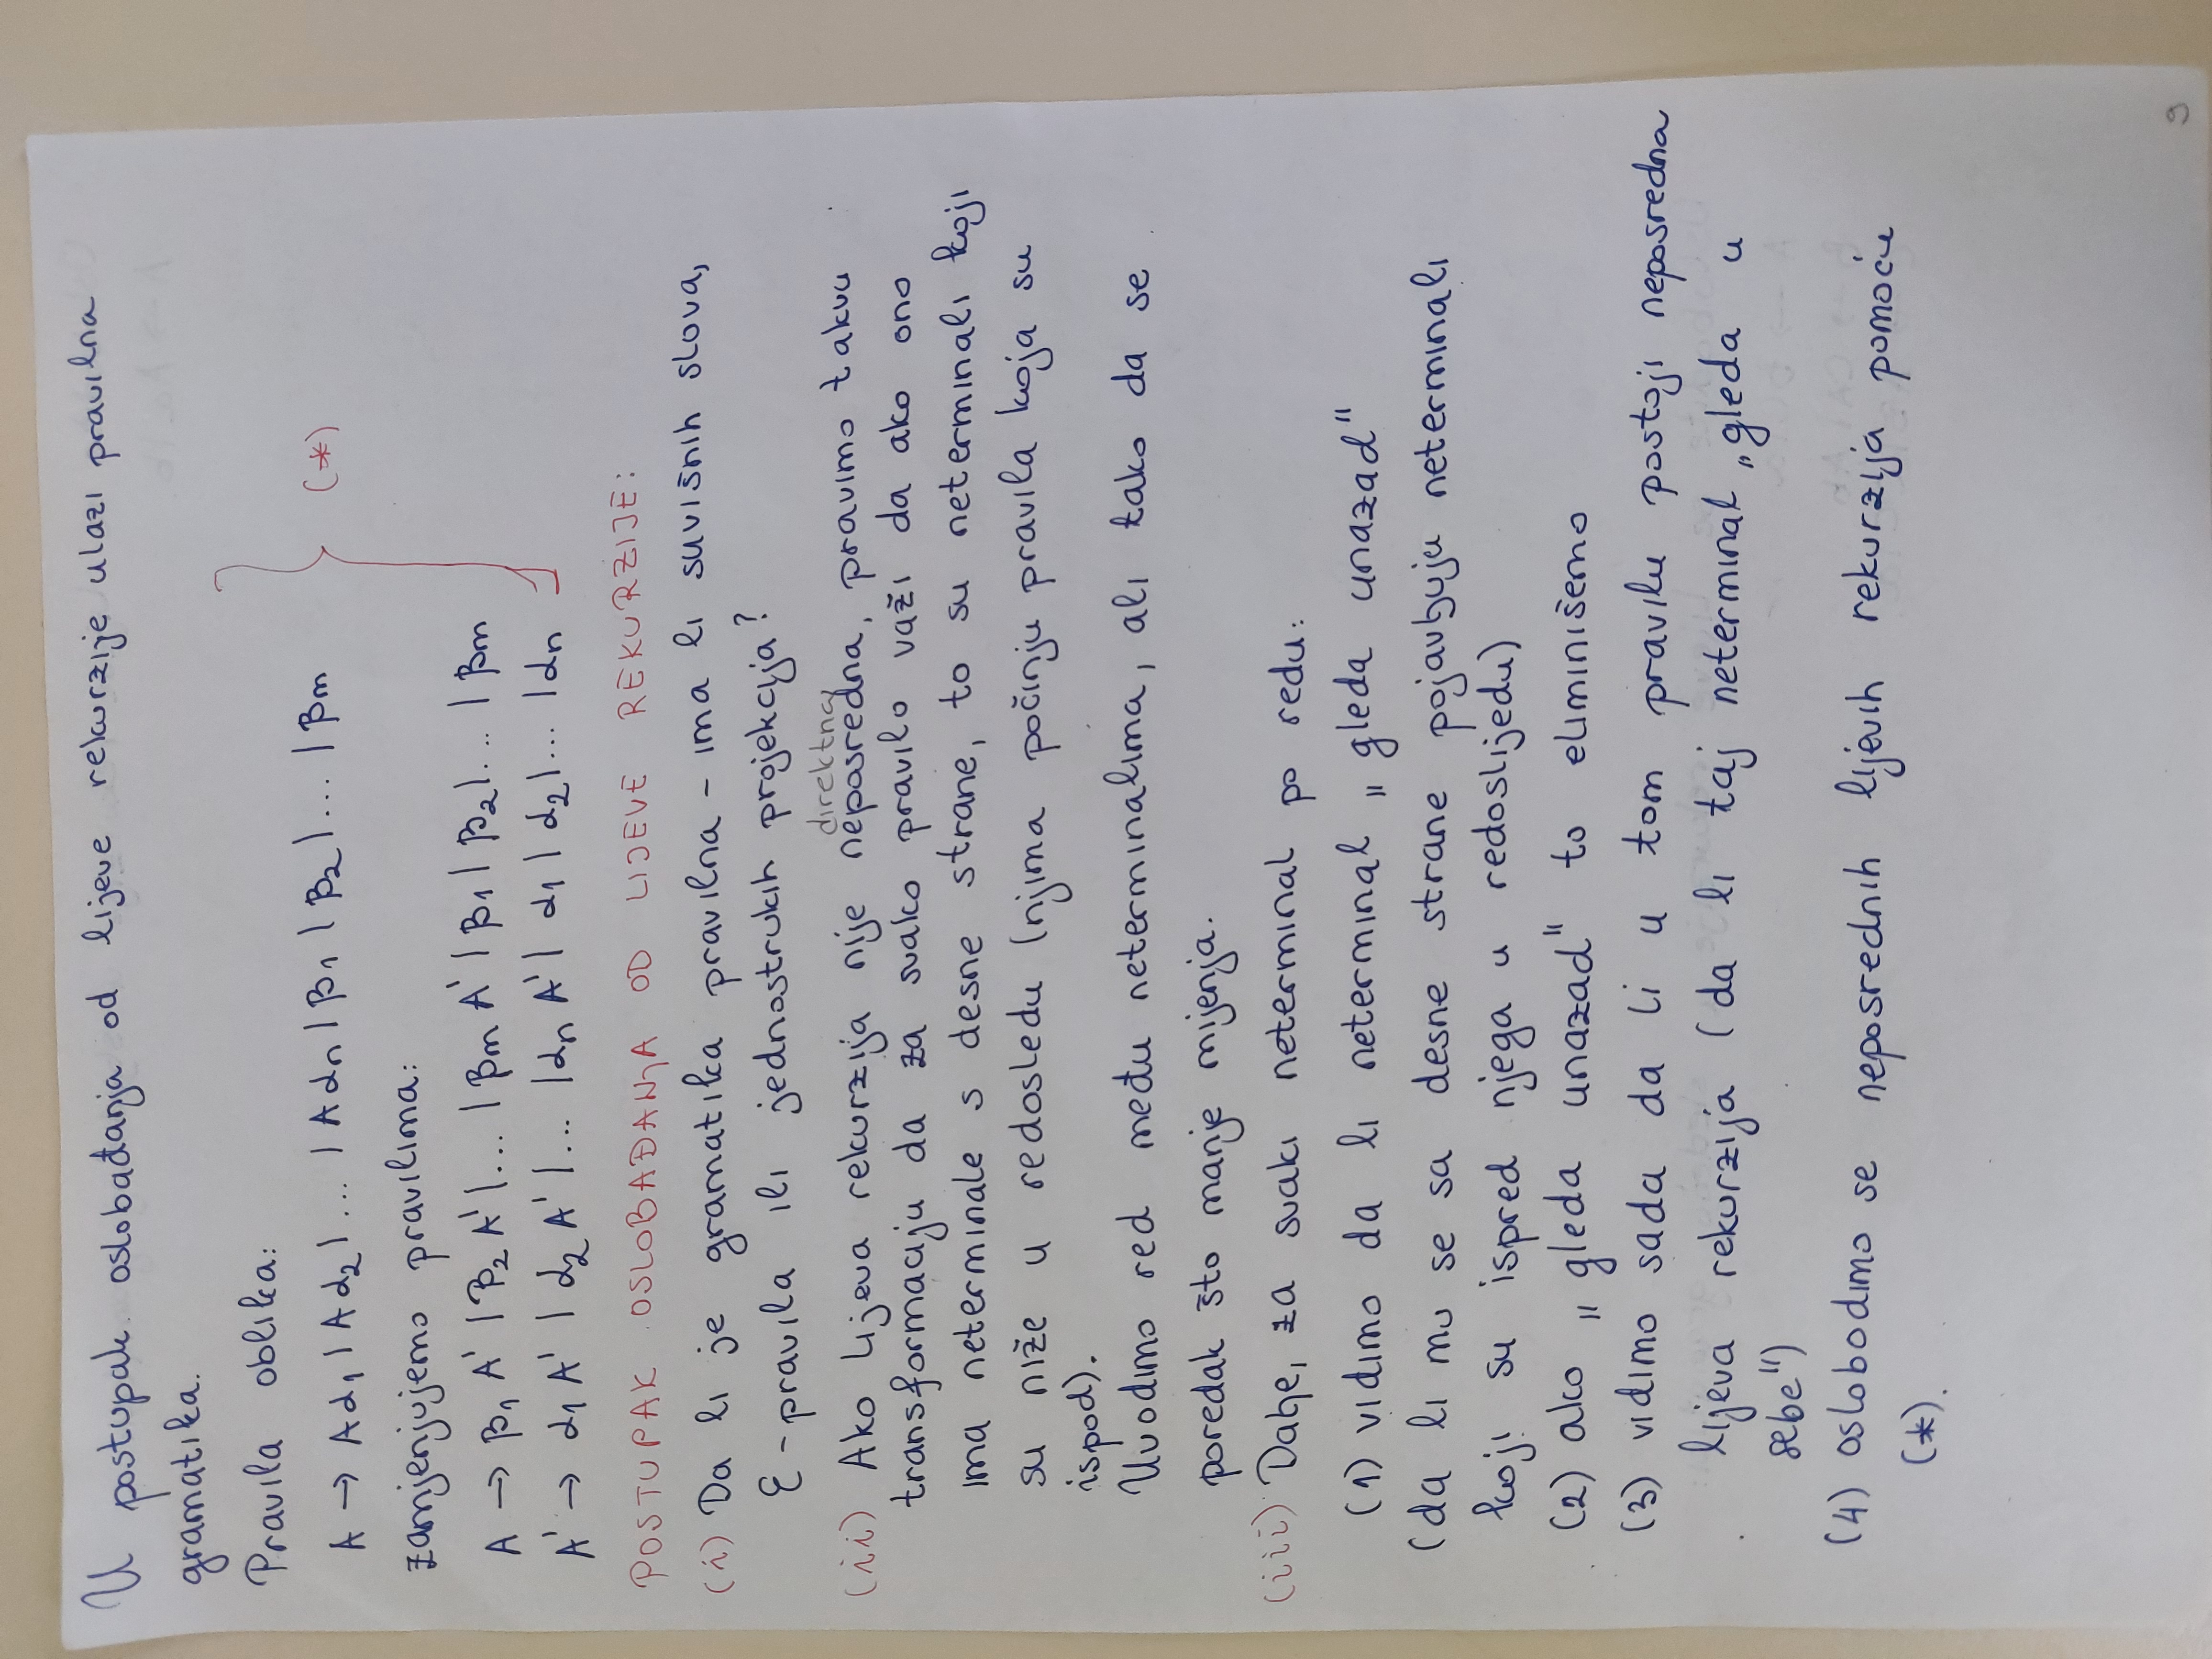 U postupak oslobađanja od lijeve rekurzije ulazi pravilna
gramatika.
Pravila oblika:
A → Aα₁ | Aα₂ | ... | Aαₙ | β₁ | β₂ | ... | βₘ
(*)
zamjenjujemo pravilima:
A → β₁ A' | β₂ A' | ... | βₘ A' | β₁ | β₂ | ... | βₘ
A' → α₁ A' | α₂ A' | ... | αₙ A' | α₁ | α₂ | ... | αₙ
POSTUPAK OSLOBAĐANJA OD LIJEVE REKURZIJE:
(i) Da li je gramatika pravilna - ima li suvišnih slova,
ε-pravila ili jednostrukih projekcija?
direktna
(ii) Ako lijeva rekurzija nije neposredna, pravimo takvu
transformaciju da za svako pravilo važi da ako ono
ima neterminale s desne strane, to su neterminali koji
su niže u redosledu (njima počinju pravila koja su
ispod).
Uvodimo red među neterminalima, ali tako da se
poredak što manje mijenja.
(iii) Dalje, za svaki neterminal po redu:
(1) vidimo da li neterminal „gleda unazad"
(da li mu se sa desne strane pojavljuju neterminali
koji su ispred njega u redoslijedu)
(2) ako „gleda unazad" to eliminišemo
(3) vidimo sada da li u tom pravilu postoji neposredna
lijeva rekurzija (da li taj neterminal „gleda u
sebe")
(4) oslobodimo se neposrednih lijevih rekurzija pomoću
(*).
9